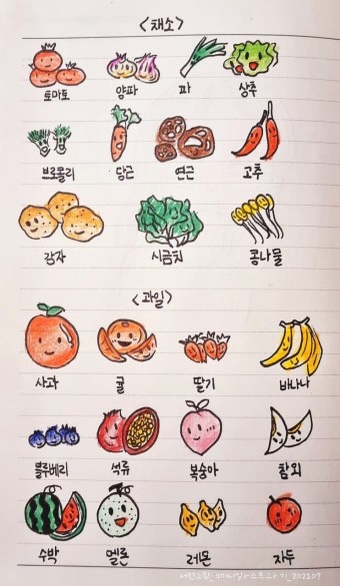 <채소>
토마토 양파 파 상추
브로콜리 당근 연근 고추
감자 시금치 콩나물
<과일>
사과 귤 딸기 바나나
블루베리 석류 복숭아 참외
수박 멜론 레몬 자두